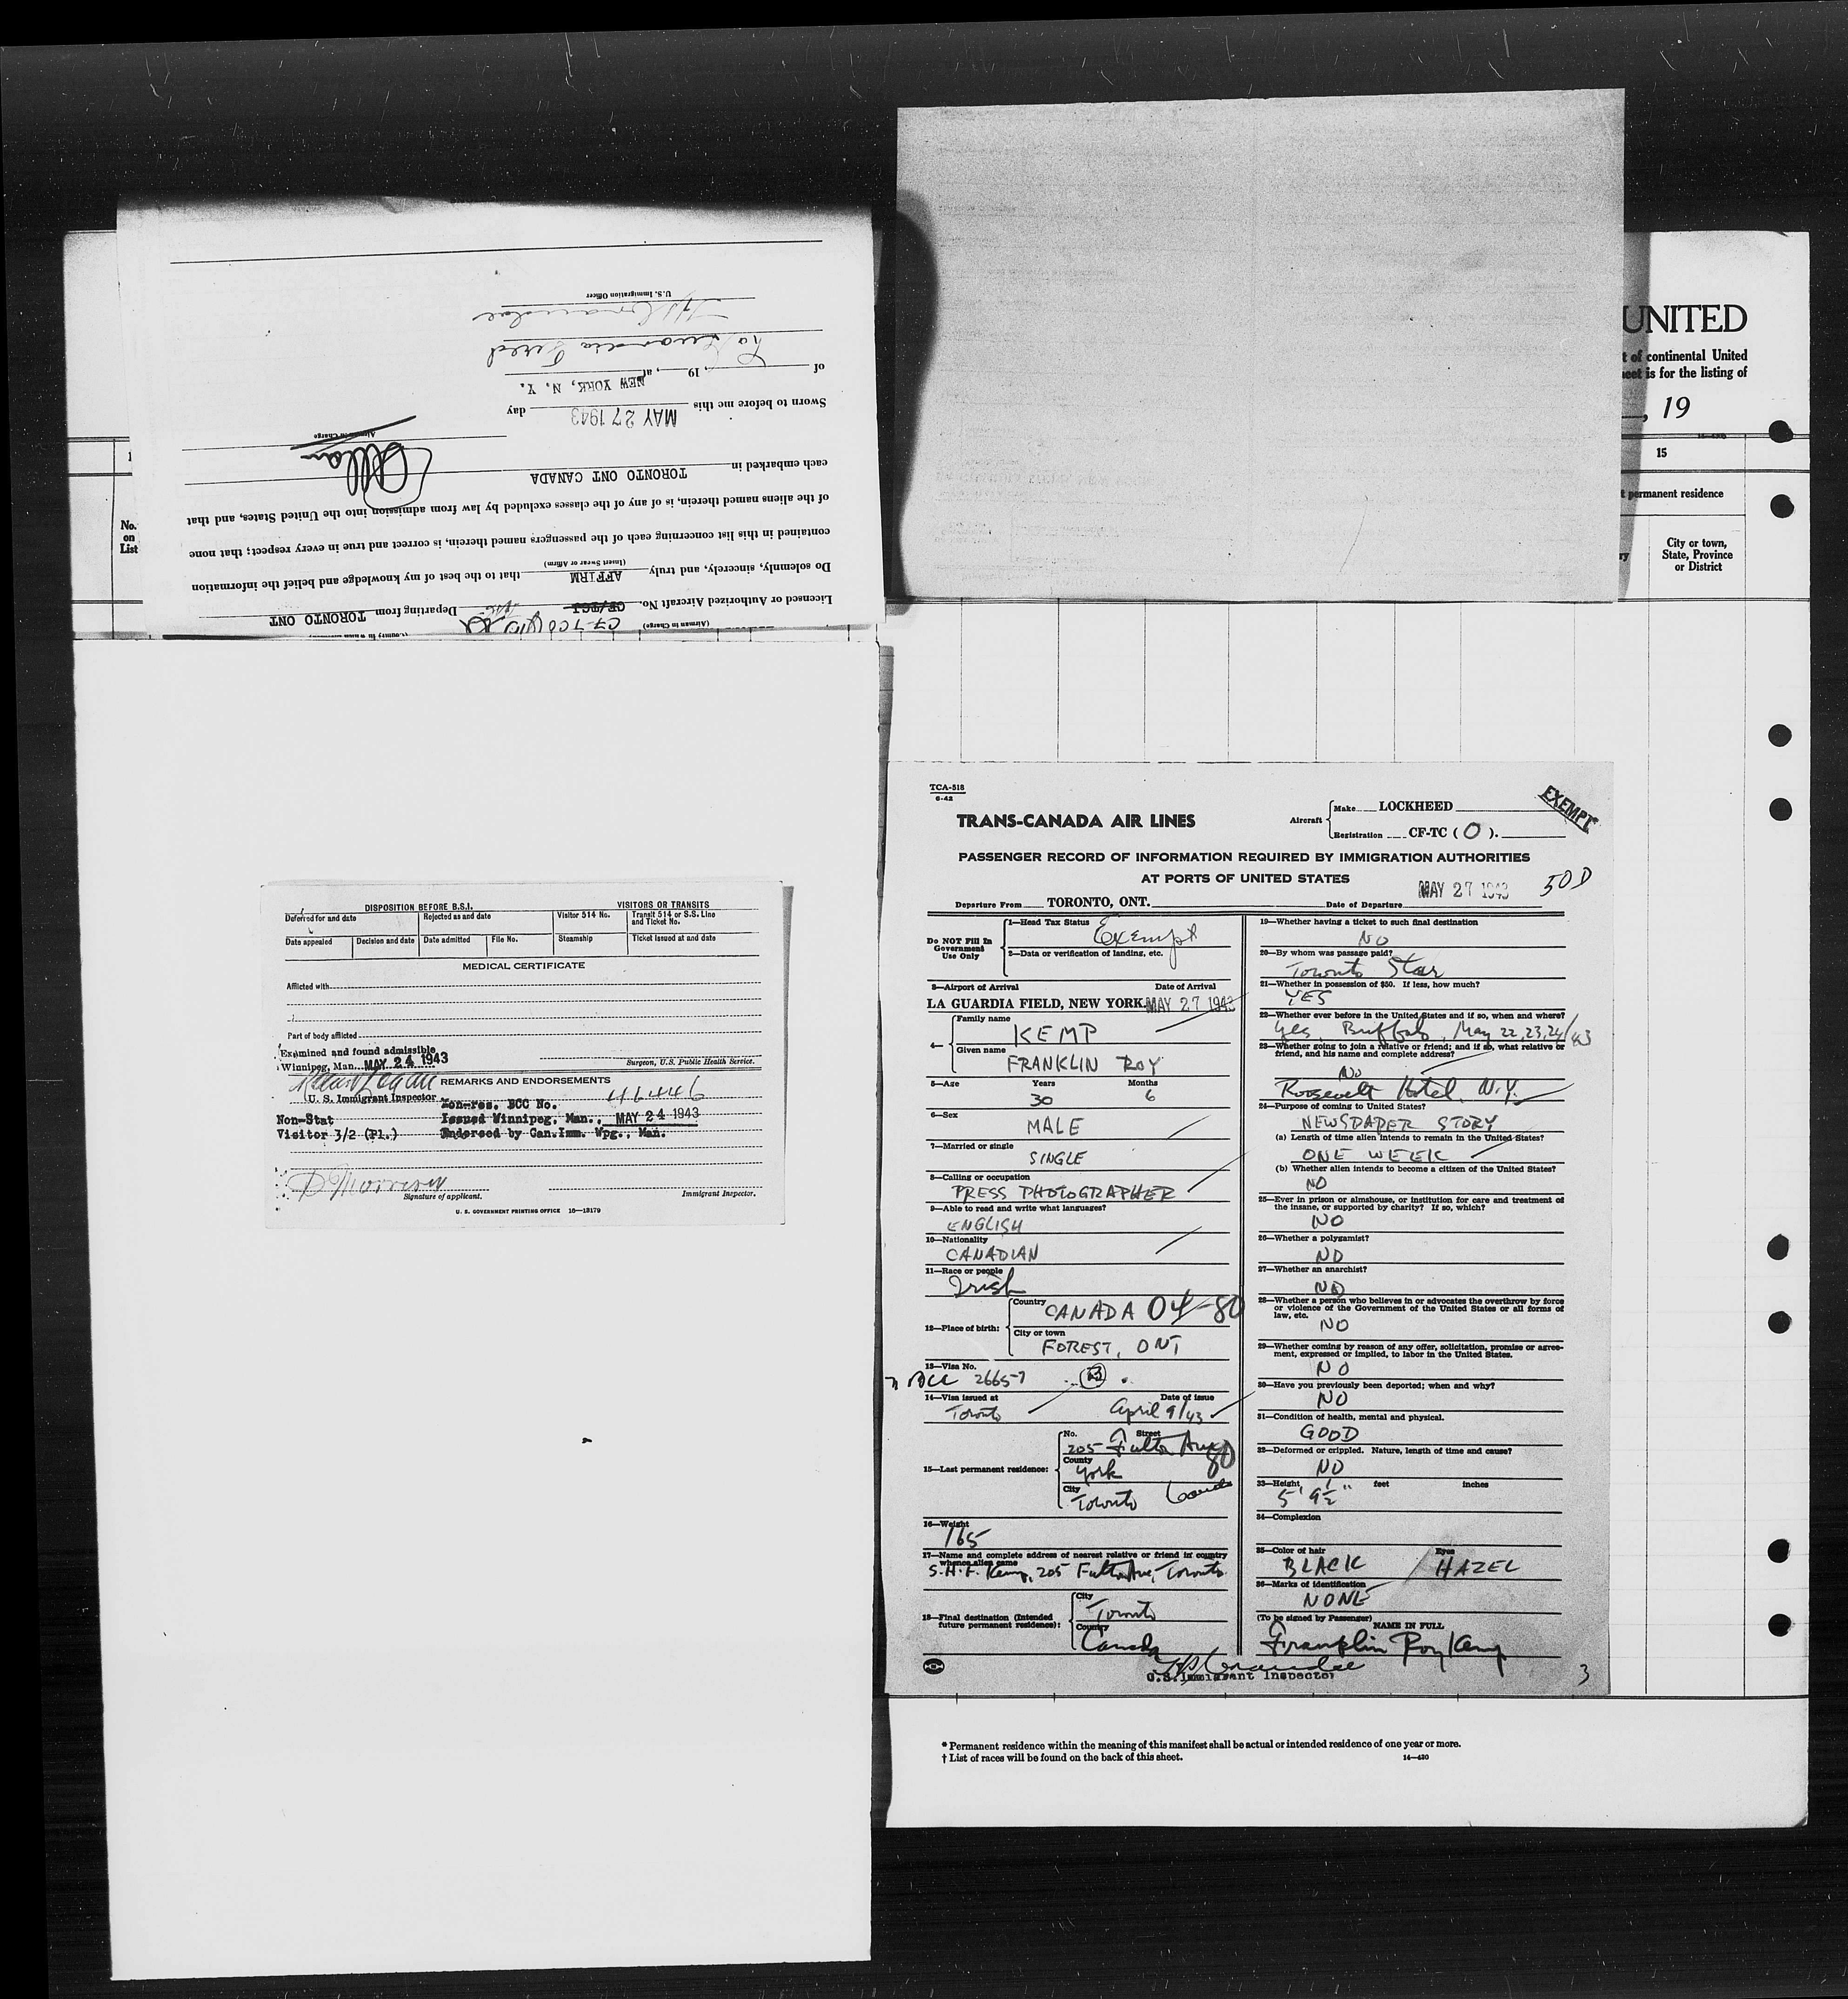 U. S. Immigration Officer
La Guardia Field
of , 19 , at NEW YORK, N. Y.
Sworn to before me this MAY 27 1943 day
Airman in Charge
each embarked in TORONTO ONT CANADA
of the aliens named therein, is of any of the classes excluded by law from admission into the United States, and that
contained in this list concerning each of the passengers named therein, is correct and true in every respect; that none
(Insert Swear or Affirm)
Do solemnly, sincerely, and truly AFFIRM that to the best of my knowledge and belief the information
Licensed or Authorized Aircraft No. CF/TCJ Departing from TORONTO ONT
(Airman in Charge) CF-TCO
No.
on
List
UNITED
t of continental United
eet is for the listing of
, 19
15
permanent residence
City or town,
State, Province
or District
DISPOSITION BEFORE B.S.I. VISITORS OR TRANSITS
Deferred for and date Rejected as and date Visitor 514 No. Transit 514 or S.S. Line and Ticket No.
Date appealed Decision and date Date admitted File No. Steamship Ticket issued at and date
MEDICAL CERTIFICATE
Afflicted with
Part of body afflicted
Examined and found admissible
Winnipeg, Man. MAY 24 1943 Surgeon, U.S. Public Health Service.
REMARKS AND ENDORSEMENTS
U. S. Immigrant Inspector Non-res. BCC No. 46446
Non-Stat Issued Winnipeg, Man., MAY 24 1943
Visitor 3/2 (Pl.) Endorsed by Can.Imm. Wpg., Man.
D Morrison
Signature of applicant. Immigrant Inspector.
U. S. GOVERNMENT PRINTING OFFICE 16—13179
TCA-518
6-42
TRANS-CANADA AIR LINES
Aircraft Make LOCKHEED
Registration CF-TC ( O ).
EXEMPT
PASSENGER RECORD OF INFORMATION REQUIRED BY IMMIGRATION AUTHORITIES
AT PORTS OF UNITED STATES
MAY 27 1943 50D
Departure From TORONTO, ONT. Date of Departure
Do NOT Fill In Government Use Only
1—Head Tax Status Exempt
2—Data or verification of landing, etc.
3—Airport of Arrival Date of Arrival
LA GUARDIA FIELD, NEW YORK. MAY 27 1943
4— Family name KEMP
Given name FRANKLIN ROY
5—Age Years Months
30 6
6—Sex
MALE
7—Married or single
SINGLE
8—Calling or occupation
PRESS PHOTOGRAPHER
9—Able to read and write what languages?
ENGLISH
10—Nationality
CANADIAN
11—Race or people
Irish
12—Place of birth: Country CANADA 04-80
City or town
FOREST, ONT
13—Visa No.
BCC 26657
14—Visa issued at Date of issue
Toronto April 9/43
15—Last permanent residence: No. Street
205 Fulton Ave
80
County
York
City
Toronto Canada
16—Weight
165
17—Name and complete address of nearest relative or friend in country
whence alien came
S.H.F. Kemp, 205 Fulton Ave, Toronto
18—Final destination (Intended future permanent residence): City
Toronto
Country
Canada
19—Whether having a ticket to such final destination
NO
20—By whom was passage paid?
Toronto Star
21—Whether in possession of $50. If less, how much?
YES
22—Whether ever before in the United States and if so, when and where?
Yes, Buffalo, May 22,23,24/43
23—Whether going to join a relative or friend; and if so, what relative or
friend, and his name and complete address?
No
Roosevelt Hotel N.Y.
24—Purpose of coming to United States?
NEWSPAPER STORY
(a) Length of time alien intends to remain in the United States?
ONE WEEK
(b) Whether alien intends to become a citizen of the United States?
NO
25—Ever in prison or almshouse, or institution for care and treatment of
the insane, or supported by charity? If so, which?
NO
26—Whether a polygamist?
NO
27—Whether an anarchist?
NO
28—Whether a person who believes in or advocates the overthrow by force
or violence of the Government of the United States or all forms of
law, etc.
NO
29—Whether coming by reason of any offer, solicitation, promise or agree-
ment, expressed or implied, to labor in the United States.
NO
30—Have you previously been deported; when and why?
NO
31—Condition of health, mental and physical.
GOOD
32—Deformed or crippled. Nature, length of time and cause?
NO
33—Height feet inches
5' 9½"
34—Complexion
35—Color of hair Eyes
BLACK HAZEL
36—Marks of identification
NONE
(To be signed by Passenger) NAME IN FULL
Franklin Roy Kemp
U.S. Immigrant Inspector
3
* Permanent residence within the meaning of this manifest shall be actual or intended residence of one year or more.
† List of races will be found on the back of this sheet. 14—420